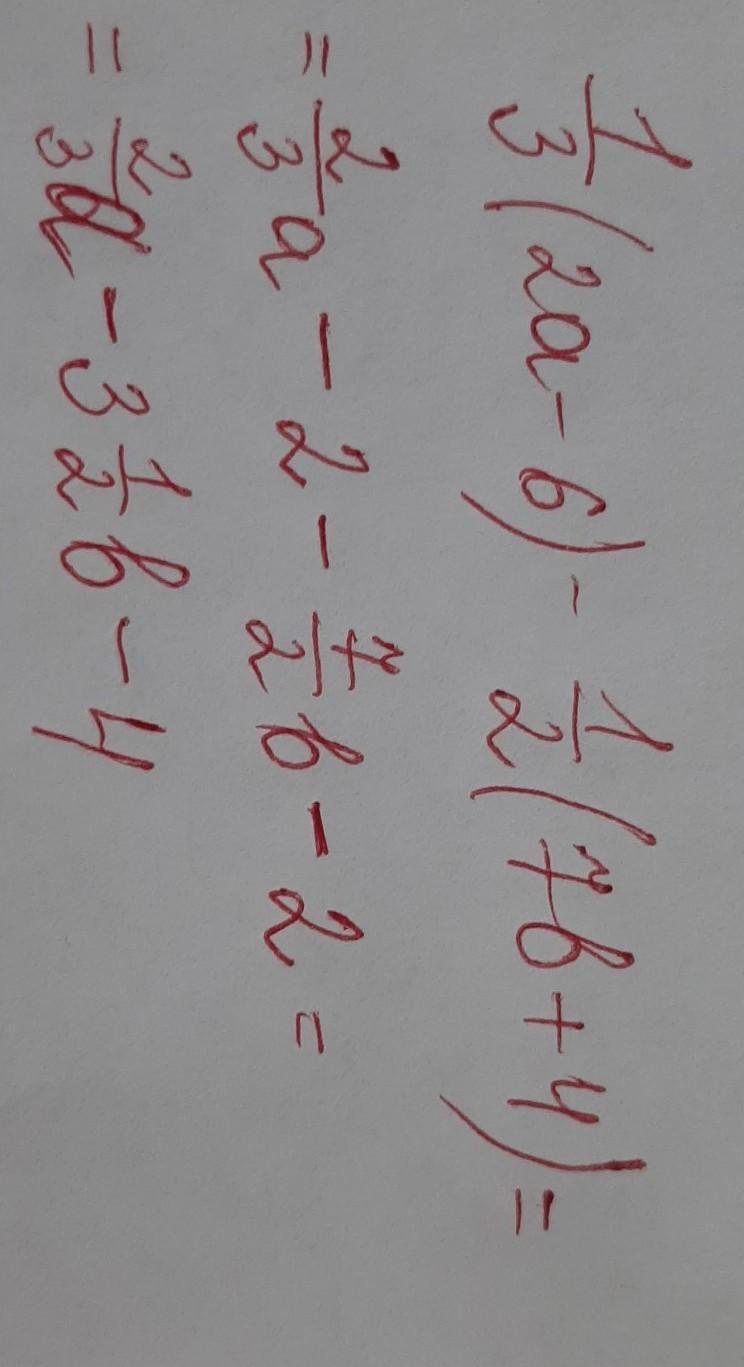 1/3(2a-6)-1/2(7b+4)=
=2/3a-2-7/2b-2=
=2/3a-3 1/2b-4